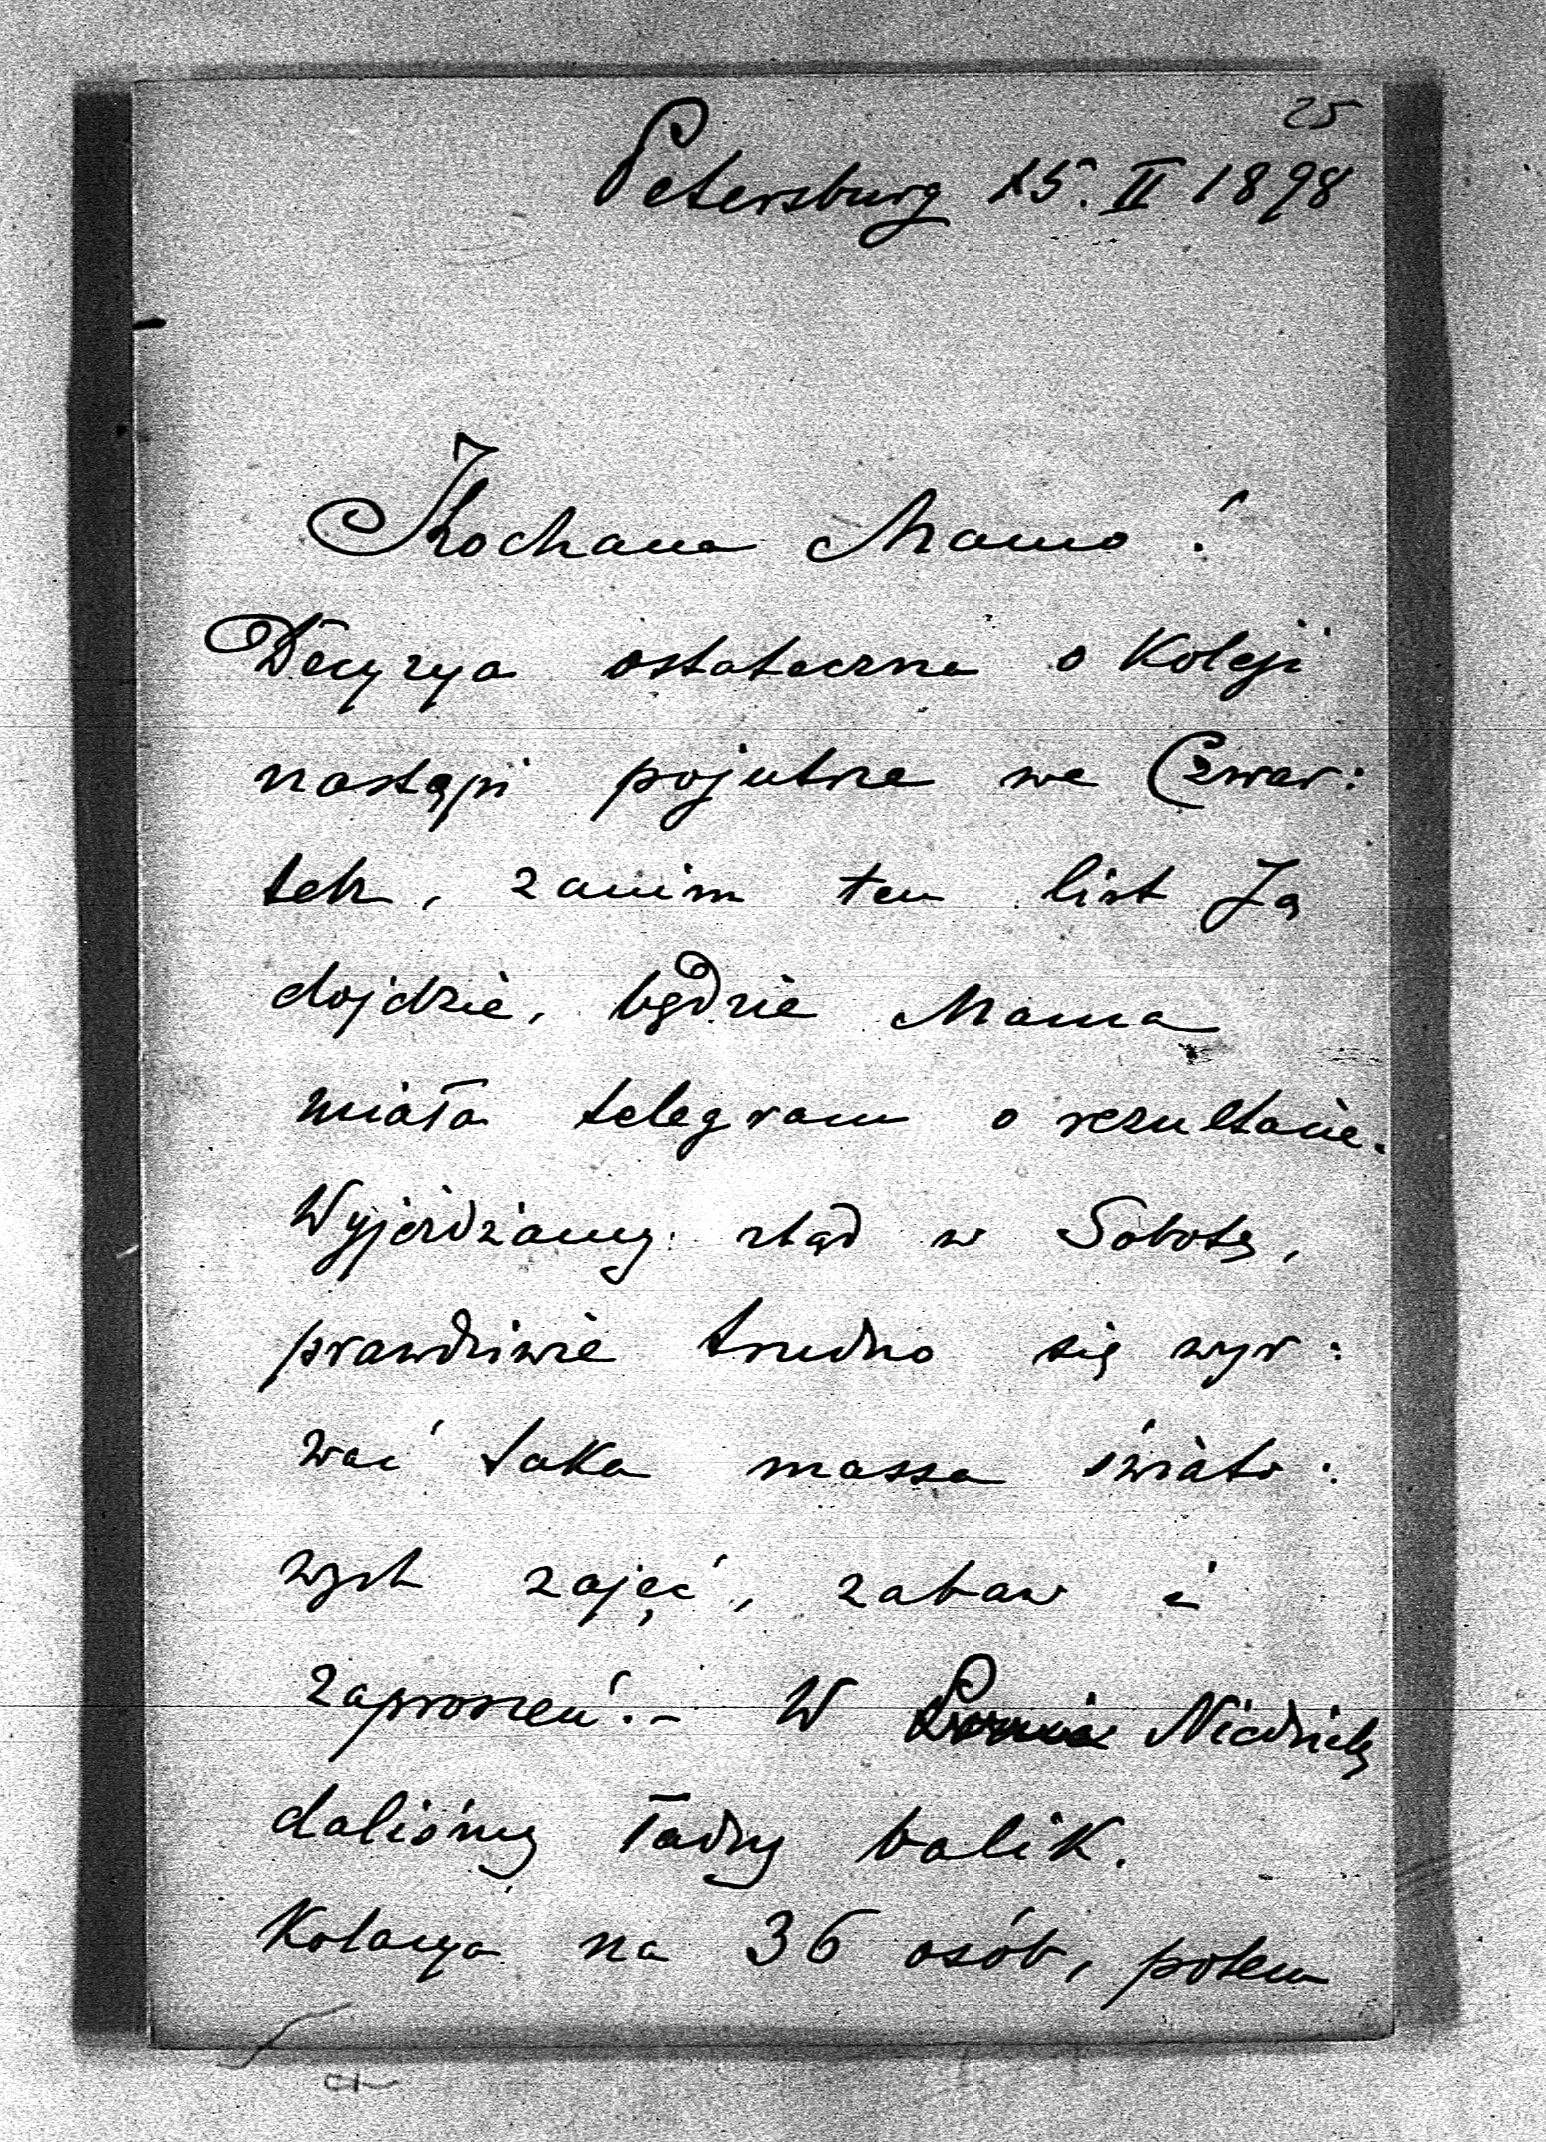 25
Petersburg 15. II 1898
Kochana Mamo!
Decyzya ostateczna o Koleji
nastąpi pojutrze we Czwar:
tek, zanim ten list Ją
dojdzie, będzie Mama
miała telegram o rezultacie.
Wyjeżdżamy ztąd w Sobotę,
prawdziwie trudno się wyr:
wać taka massa świato:
wych zajęć, zabaw i
zaproszeń. - W Niedzielę
daliśmy ładny balik.
Kolacya na 36 osób, potem